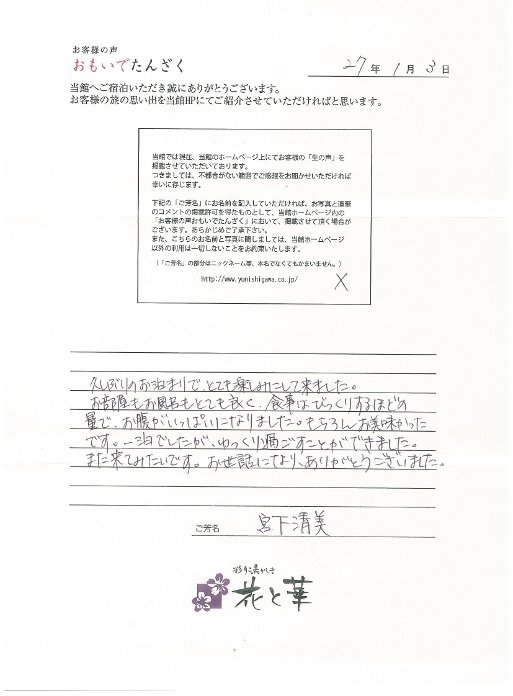 お客様の声
おもいでたんざく
27年 1月 3日
当館へご宿泊いただき誠にありがとうございます。
お客様の旅の思い出を当館HPにてご紹介させていただければと思います。
当館では現在、当館のホームページ上にてお客様の「生の声」を
掲載させていただいております。
つきましては、不都合がない範囲でご感想をお聞かせいただければ
幸いに存じます。
下記の「ご芳名」にお名前を記入していただければ、お写真と直筆
のコメントの掲載許可を得たものとして、当館ホームページ内の
「お客様の声おもいでたんざく」において、掲載させて頂く場合が
ございます。あらかじめご了承下さい。
また、こちらのお名前と写真に関しましては、当館ホームページ
以外の利用は一切しないことをお約束いたします。
(「ご芳名」の部分はニックネーム等、本名でなくてもかまいません。)
http://www.yunishigawa.co.jp/
X
久しぶりのお泊まりで、とても楽しみにして来ました。
お部屋もお風呂もとても良く、食事はびっくりするほどの
量で、お腹がいっぱいになりました。もちろんお美味かった
です。一泊でしたが、ゆっくり過ごすことができました。
また来てみたいです。お世話になり、ありがとうございました。
ご芳名 宮下清美
彩り湯かしき
花と華